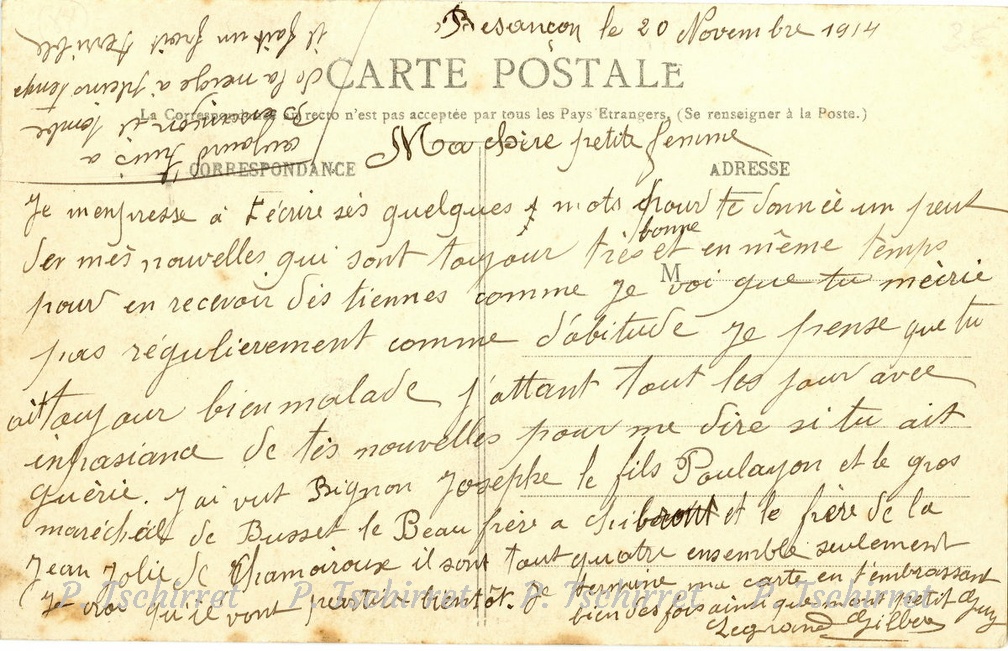 Besançon le 20 Novembre 1914
CARTE POSTALE
La Correspondance au recto n'est pas acceptée par tous les Pays Etrangers. (Se renseigner à la Poste.)
Ma chère petite femme
CORRESPONDANCE
ADRESSE
Je m'enpresse à t'écrire sès quelques mots pour te donnée un peut
der mès nouvelles qui sont toujour très bonne et en même temps
M
pour en recevoir dès tiennes comme je voi que tu mécrie
pas régulierement comme d'abitude je pense que tu
ait toujour bien malade j'attant tout les jour avec
inpasiance de tès nouvelles pour me dire si tu ait
guérie. j'ai vut Bignon Josèphe le fils Poulayon et le gros
maréchal de Busset le Beau frère a et le frère de la
Jean Jolie de Chamoiroux il sont tout quatre ensemble seulement
je croi qu'il vont partir bientôt. Je termine ma carte en t'embrassant
bien des fois ainsi que mont petit Guy
Legrand Gilbert
aujourd'huis a
Besançon il tombe
de la neige a pleine temps
il fait un froit terrible
P. Tschirret P. Tschirret P. Tschirret P. Tschirret